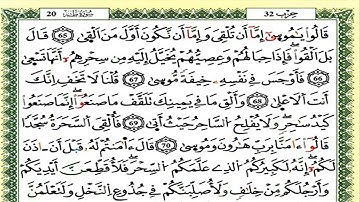 حزب 32 سورة طه 20
قَالُواْ يَٰمُوسَىٰٓ إِمَّآ أَن تُلْقِيَ وَإِمَّآ أَن نَّكُونَ أَوَّلَ مَنْ أَلْقَىٰ 65 قَالَ
بَلْ أَلْقُواْ فَإِذَا حِبَالُهُمْ وَعِصِيُّهُمْ يُخَيَّلُ إِلَيْهِ مِن سِحْرِهِمْ أَنَّهَا تَسْعَىٰ
66 فَأَوْجَسَ فِي نَفْسِهِۦ خِيفَةً مُّوسَىٰ 67 قُلْنَا لَا تَخَفْ إِنَّكَ
أَنتَ اَلْأَعْلَىٰ 68 وَأَلْقِ مَا فِي يَمِينِكَ تَلَقَّفْ مَا صَنَعُوٓاْ إِنَّمَا صَنَعُواْ
كَيْدُ سَٰحِرٍ وَلَا يُفْلِحُ اُلسَّاحِرُ حَيْثُ أَتَىٰ 69 فَأُلْقِيَ اَلسَّحَرَةُ سُجَّدًا
قَالُوٓاْ ءَامَنَّا بِرَبِّ هَٰرُونَ وَمُوسَىٰ 70 قَالَ ءَاٰمَنتُمْ لَهُۥ قَبْلَ أَنْ ءَاذَنَ
لَكُمُۥٓ إِنَّهُۥ لَكَبِيرُكُمُ اُلذِي عَلَّمَكُمُ اُلسِّحْرَ فَلَأُقَطِّعَنَّ أَيْدِيَكُمْ
وَأَرْجُلَكُم مِّنْ خِلَٰفٍ وَلَأُصَلِّبَنَّكُمْ فِي جُذُوعِ اِلنَّخْلِ وَلَتَعْلَمُنَّ